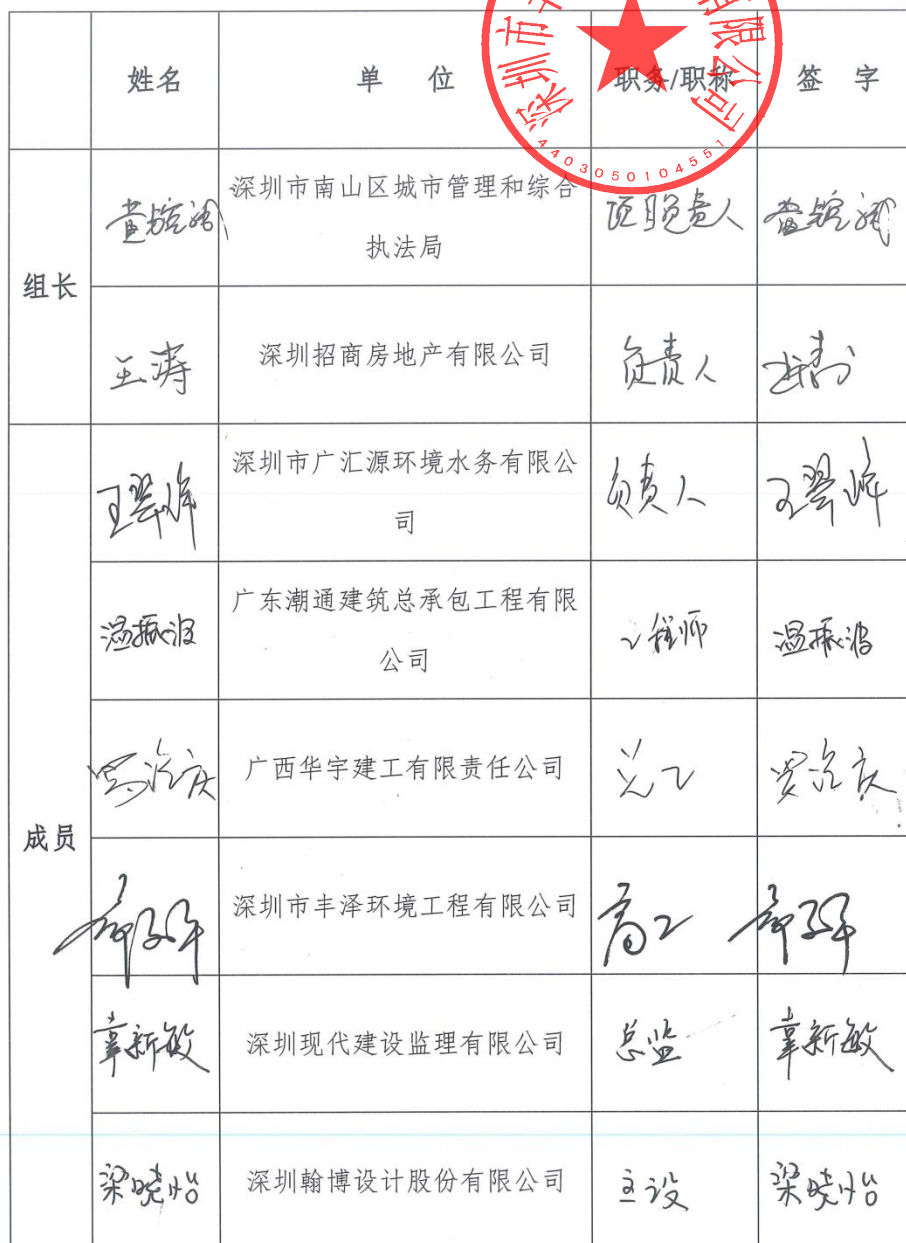 深圳市 有限公司
4403050104551
姓名 单 位 职务/职称 签 字
组长
深圳市南山区城市管理和综合
执法局
项目负责人
王涛 深圳招商房地产有限公司 负责人 王涛
成员
王翠峰 深圳市广汇源环境水务有限公
司
负责人 王翠峰
温振波 广东潮通建筑总承包工程有限
公司
工程师 温振波
广西华宇建工有限责任公司
深圳市丰泽环境工程有限公司 高工
章新敏 深圳现代建设监理有限公司 总监 章新敏
梁晓怡 深圳翰博设计股份有限公司 主设 梁晓怡